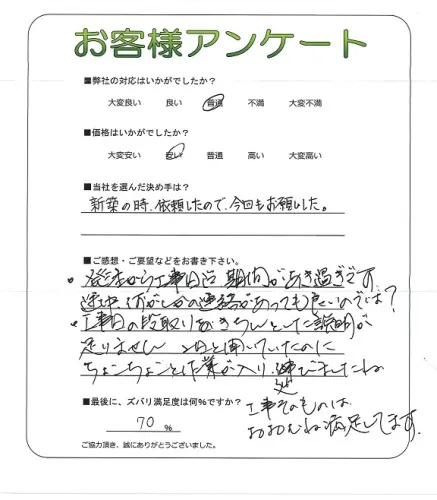 お客様アンケート
■弊社の対応はいかがでしたか?
大変良い 良い 普通 不満 大変不満
■価格はいかがでしたか?
大変安い 安い 普通 高い 大変高い
■当社を選んだ決め手は?
新築の時、依頼したので、今回もお願いした。
■ご感想・ご要望などをお書き下さい。
から工事日迄 期間があき過ぎです
途中 何がしかの連絡があっても良いのでは?
工事日の段取りをきちんとした説明が
足りません 2日と聞いていたのに
ちょんちょんと作業が入り、延びましたね
工事そのものは
おおむね満足してます。
■最後に、ズバリ満足度は何%ですか?
70 %
ご協力頂き、誠にありがとうございました。